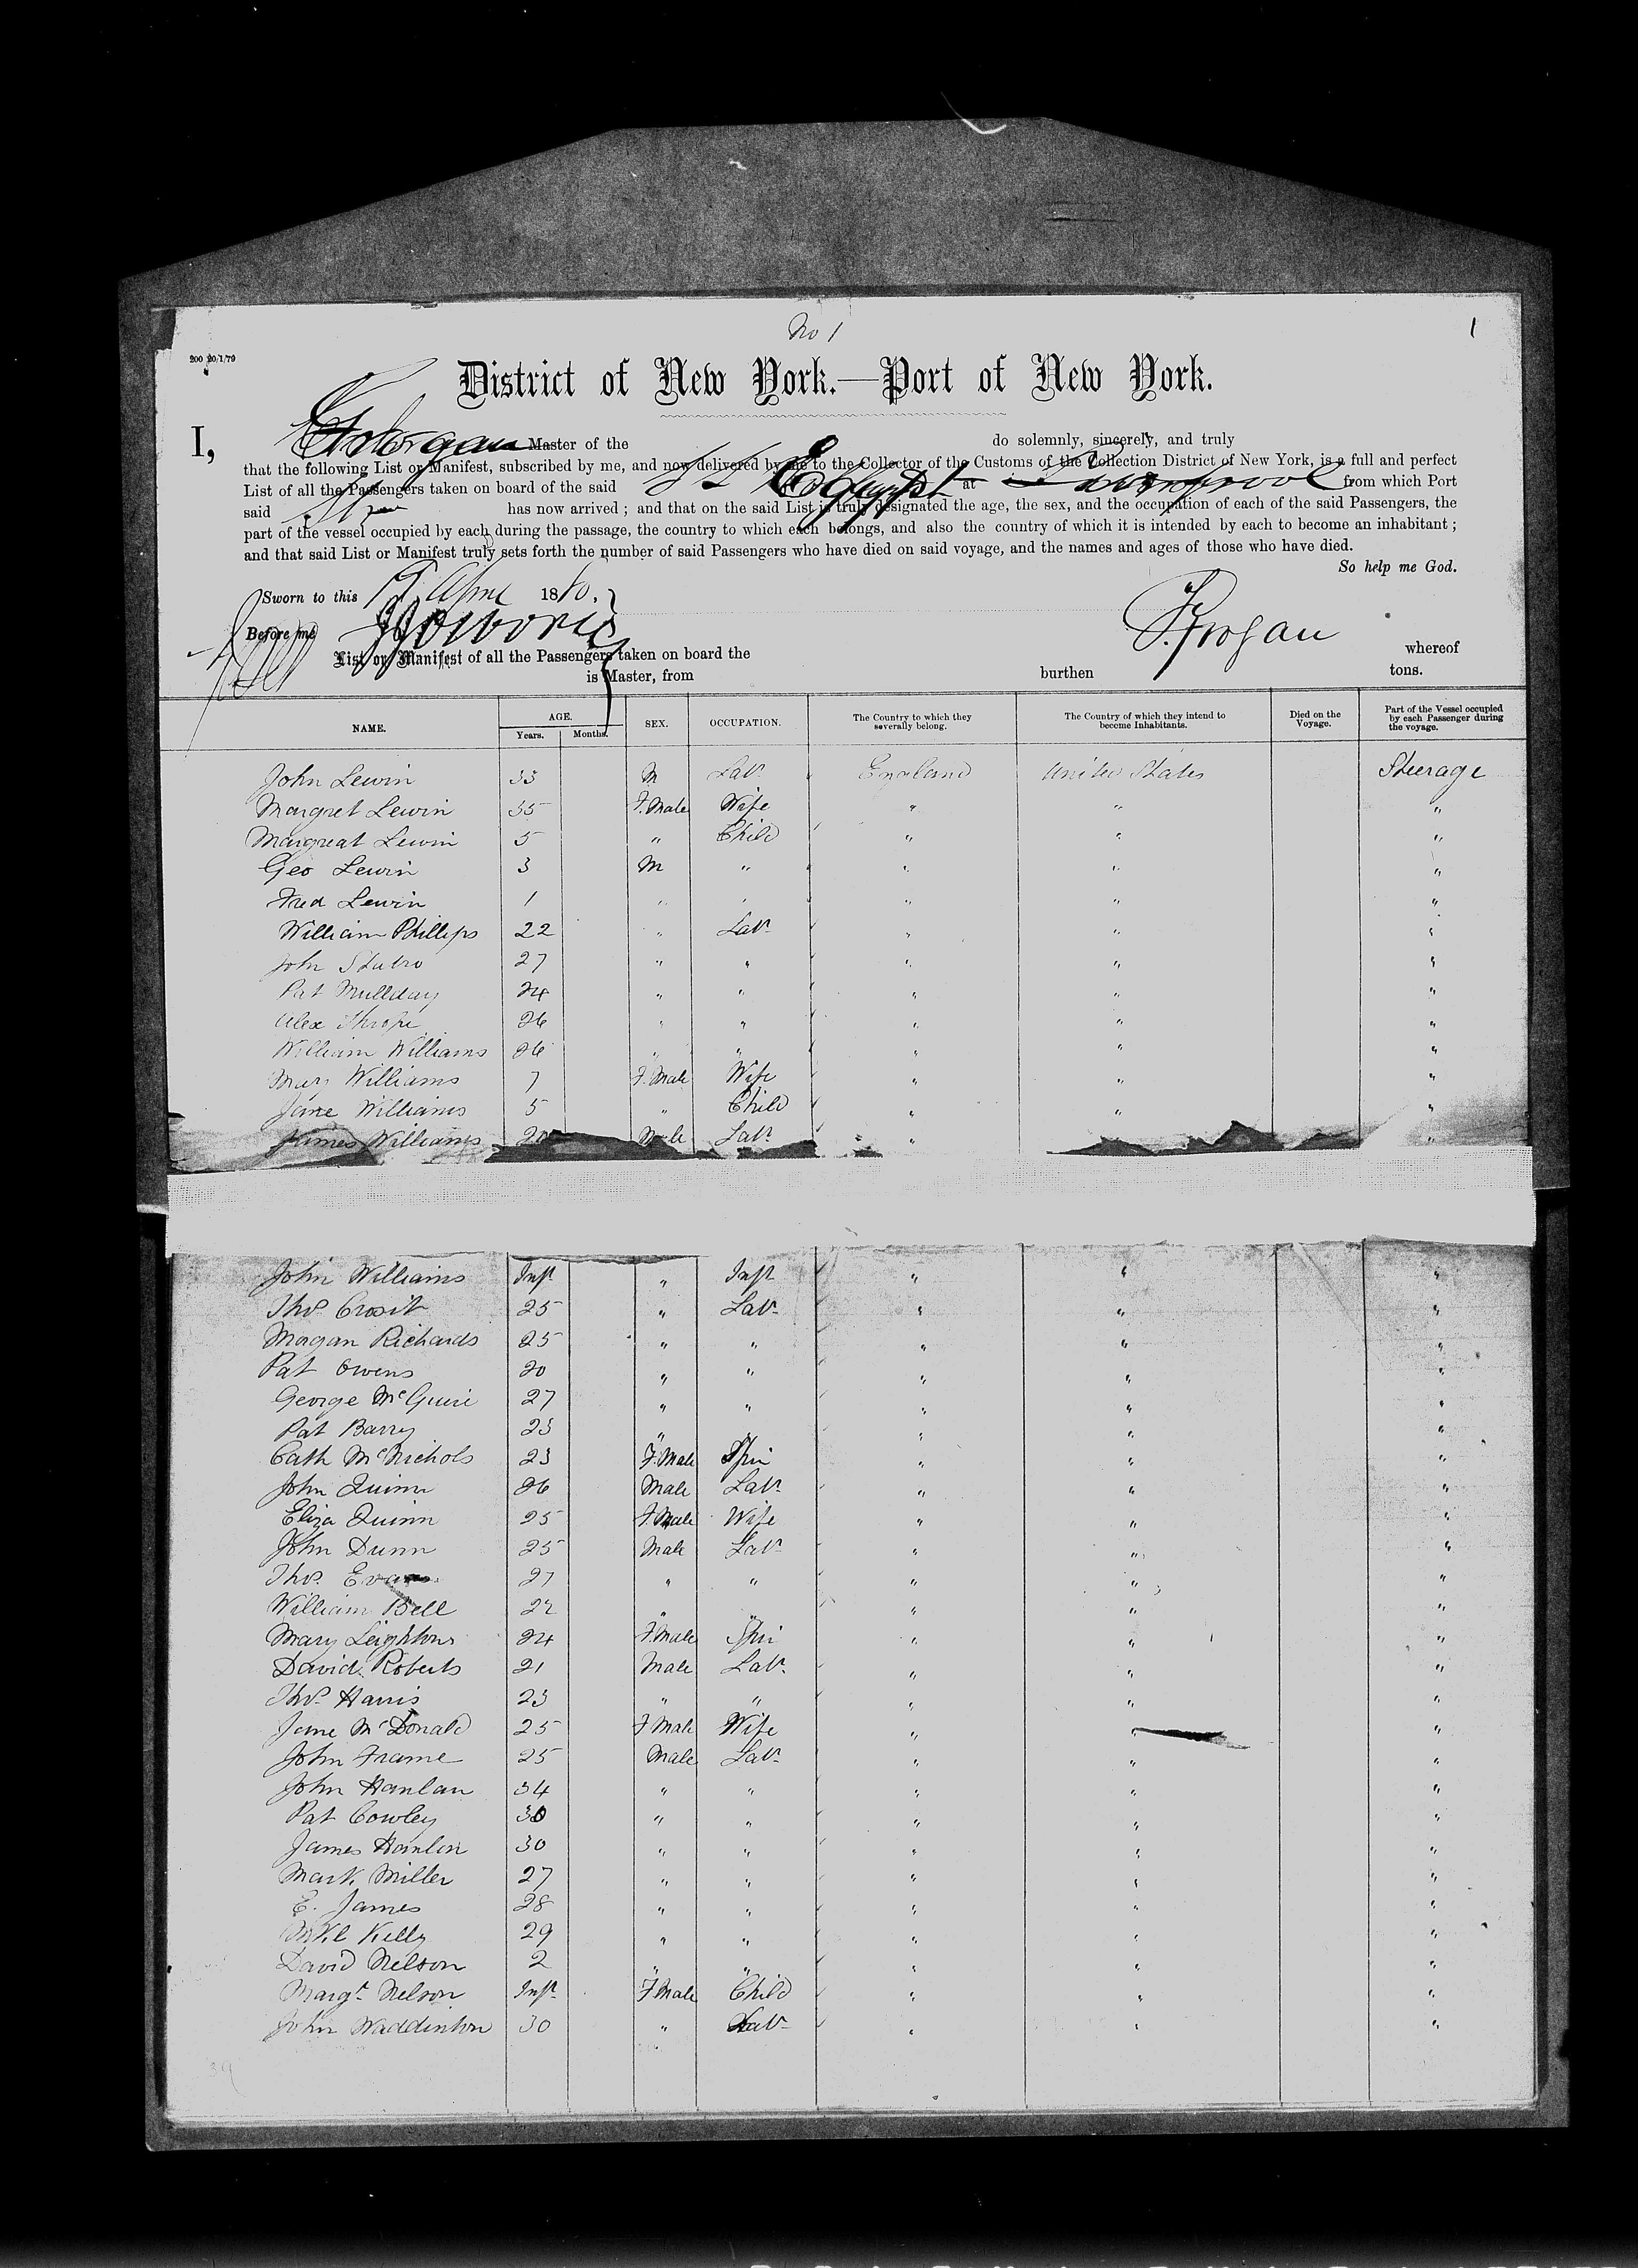 No 1
1
200 20/1/79
District of New York.—Port of New York.
I, Grogan Master of the do solemnly, sincerely, and truly
that the following List or Manifest, subscribed by me, and now delivered by me to the Collector of the Customs of the Collection District of New York, is a full and perfect
List of all the Passengers taken on board of the said SS Egypt at Liverpool from which Port
said Str has now arrived; and that on the said List is truly designated the age, the sex, and the occupation of each of the said Passengers, the
part of the vessel occupied by each during the passage, the country to which each belongs, and also the country of which it is intended by each to become an inhabitant;
and that said List or Manifest truly sets forth the number of said Passengers who have died on said voyage, and the names and ages of those who have died.
So help me God.
Sworn to this 19 April 1880.
Before me Grogan
List or Manifest of all the Passengers taken on board the whereof
is Master, from burthen tons.
NAME. AGE. Years. Months. SEX. OCCUPATION. The Country to which they severally belong. The Country of which they intend to become Inhabitants. Died on the Voyage. Part of the Vessel occupied by each Passenger during the voyage.
John Lewin 33 M Labr England United States Steerage
Margret Lewin 35 F.Male Wife " " "
Margreat Lewin 5 " Child " " "
Geo Lewin 3 M " " " "
Fred Lewin 1 " " " " "
William Phillips 22 " Labr " " "
John 27 " " " " "
Pat Mullday 24 " " " " "
Alex Thrope 26 " " " " "
William Williams 26 " " " " "
Mary Williams 7 F.Male Wife " " "
Jane Williams 5 " Child " " "
James Williams 20 Male Labr " "
John Williams Inft " Inft " " "
Thos Crosit 25 " Labr " " "
Magan Richards 25 " " " " "
Pat Owens 20 " " " " "
George McGuire 27 " " " " "
Pat Barry 23 " " " " "
Cath McNichols 23 F.Male Spin " " "
John Quinn 26 Male Labr " " "
Eliza Quinn 25 F.Male Wife " " "
John Dunn 25 Male Labr " " "
Thos. Evans 27 " " " " "
William Bell 22 " " " " "
Mary Leighton 24 F.Male Spin " " "
David Roberts 21 Male Labr " " "
Thos Harris 23 " " " " "
Jane McDonald 25 F Male Wife " " "
John Frame 25 Male Labr " " "
John Hanlan 34 " " " " "
Pat Cowley 30 " " " " "
James Hanlon 30 " " " " "
Mark Miller 27 " " " " "
E. James 28 " " " " "
Mkl Kelly 29 " " " " "
David Nelson 2 " " " " "
Margt Nelson Inft F Male Child " " "
John Waddinton 30 " Labr " " "
39